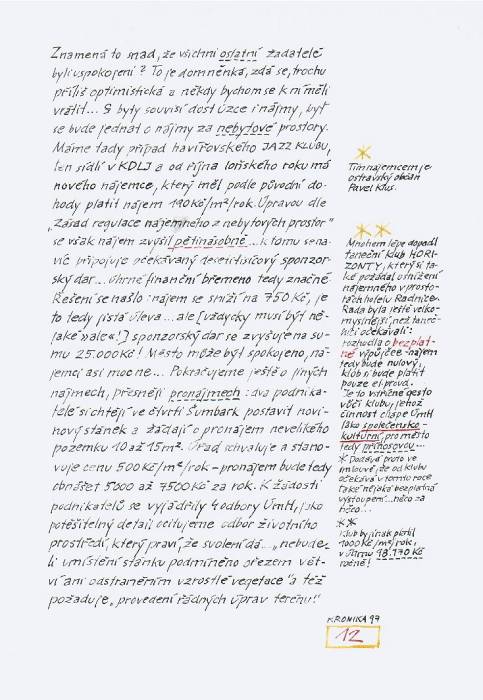 Znamená to snad, že všichni ostatní žadatelé
byli uspokojeni? To je domněnka, zdá se, trochu
příliš optimistická a někdy bychom se k ní měli
vrátit... S byty souvisí dost úzce i nájmy, byť
se bude jednat o nájmy za nebytové prostory.
Máme tady případ havířovského JAZZ KLUBU,
ten sídlí v KDLJ a od října loňského roku má
nového nájemce, který měl podle původní do-
hody platit nájem 190 Kč/m²/rok. Úpravou dle
„Zásad regulace nájemného z nebytových prostor"
se však nájem zvýšil pětinásobně... k tomu se na-
víc připojuje očekávaný desetitisícový sponzor-
ský dar... úhrné finanční břemeno tedy značné.
Řešení se našlo: nájem se sníží na 750 Kč, je
to tedy jistá úleva... ale [vždycky musí být ně-
jaké »ale«!] sponzorský dar se zvyšuje na su-
mu 25.000 Kč! Město může být spokojeno, ná-
jemci asi moc ne... Pokračujeme ještě o jiných
nájmech, přesněji pronájmech: dva podnika-
telé si chtějí ve čtvrti Šumbark postavit novi-
nový stánek a žádají o pronájem nevelikého
pozemku 10 až 15 m². Úřad schvaluje a stano-
vuje cenu 500 Kč/m²/rok – pronájem bude tedy
obnášet 5000 až 7500 Kč za rok. K žádosti
podnikatelů se vyjádřily 4 odbory ÚmH, jako
potěšitelný detail ocitujeme odbor životního
prostředí, který praví, že svolení dá... „nebude-
li umístění stánku podmíněno ořezem vět-
ví ani odstraněním vzrostlé vegetace" a též
požaduje „provedení řádných úprav terénu!"
*
Tím nájemcem je
ostravský občan
Pavel Klus.
**
Mnohem lépe dopadl
taneční klub HORI-
ZONTY, který si ta-
ké požádal o snížení
nájemného v prosto-
rách hotelu Radnice.
Rada byla ještě velko-
myslnější, než taneč-
níci očekávali:
rozhodla o bezplat-
né výpůjčce – nájem
tedy bude nulový,
klub si bude platit
pouze el. proud.
Je to vstřícné gesto
vůči klubu, jehož
činnost chápe ÚmH
jako společensko-
kulturní, pro město
tedy přínosovou...
* Dodává proto ve
smlouvě, že od klubu
očekává v tomto roce
také nějaká bezplatná
vystoupení... něco za
něco...
**
Klub by jinak platil
1000 Kč/m²/rok,
v úhrnu 98.170 Kč
ročně!
KRONIKA 97
12